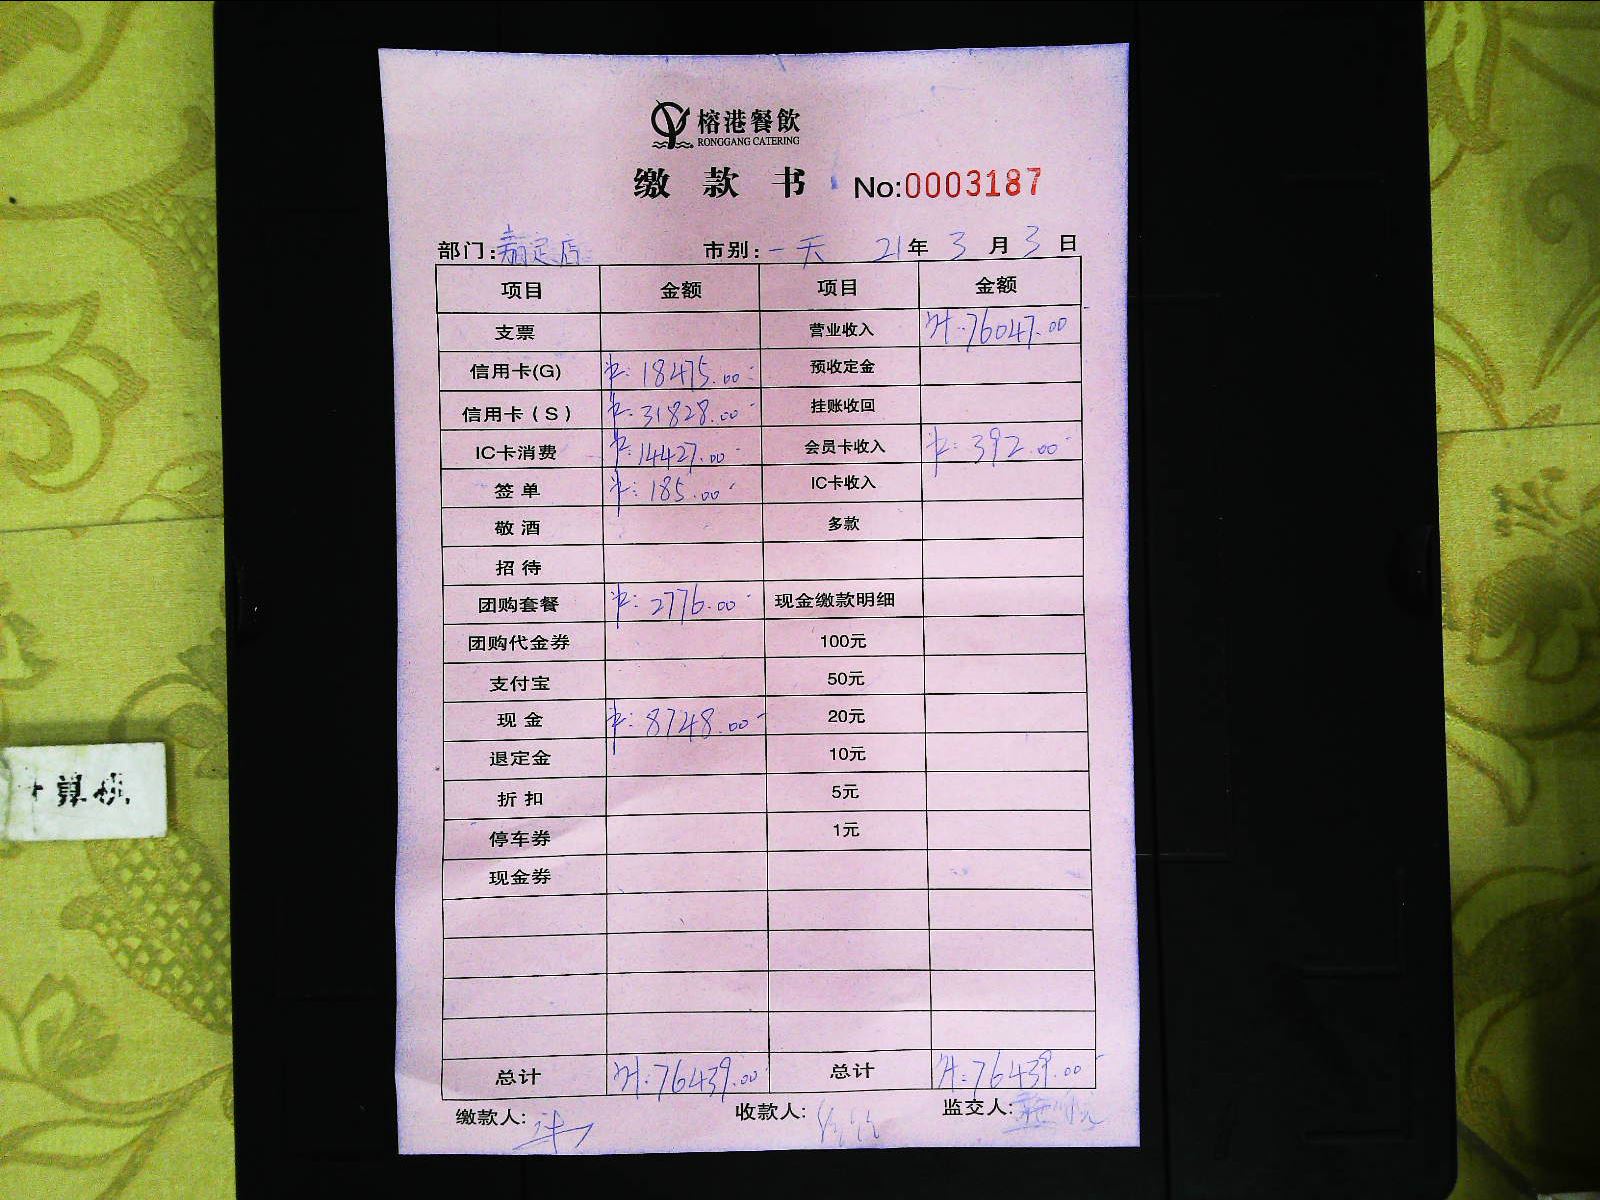 榕港餐飲
RONGGANG CATERING
缴款书 No:0003187
部门:嘉定店 市别:一天 21年3月3日
项目 金额 项目 金额
支票 营业收入 76047.00
信用卡(G) 18475.00 预收定金
信用卡(S) 31828.00 挂账收回
IC卡消费 14427.00 会员卡收入 392.00
签单 185.00 IC卡收入
敬酒 多款
招待
团购套餐 2776.00 现金缴款明细
团购代金券 100元
支付宝 50元
现金 8748.00 20元
退定金 10元
折扣 5元
停车券 1元
现金券
总计 76439.00 总计 76439.00
缴款人: 收款人: 监交人:
计算机